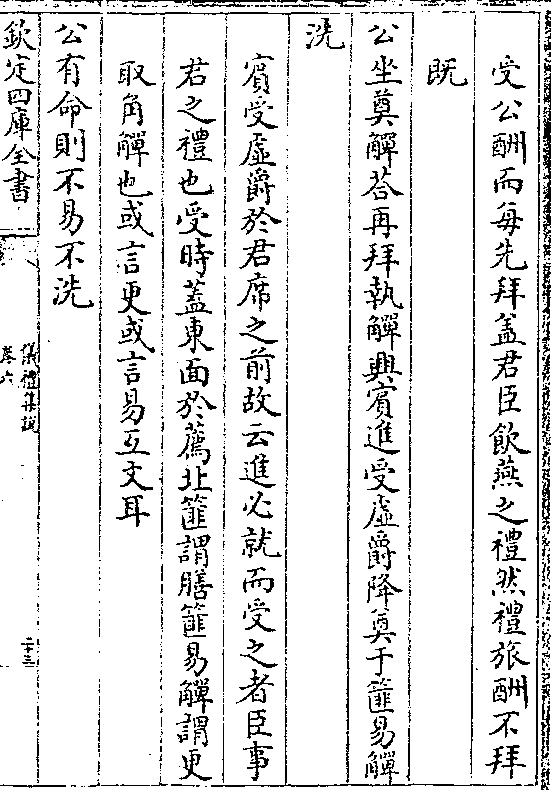 受公酬而每先拜蓋君臣飲燕之禮然禮旅酬不拜
既
公坐奠觶荅再拜執觶興賓進受虛爵降奠于篚易觶
洗
賓受虛爵於君席之前故云進必就而受之者臣事
君之禮也受時蓋東面於薦北篚謂膳篚易觶謂更
取角觶也或言更或言易互文耳
公有命則不易不洗
欽定四庫全書
儀禮集說
卷六
二十三